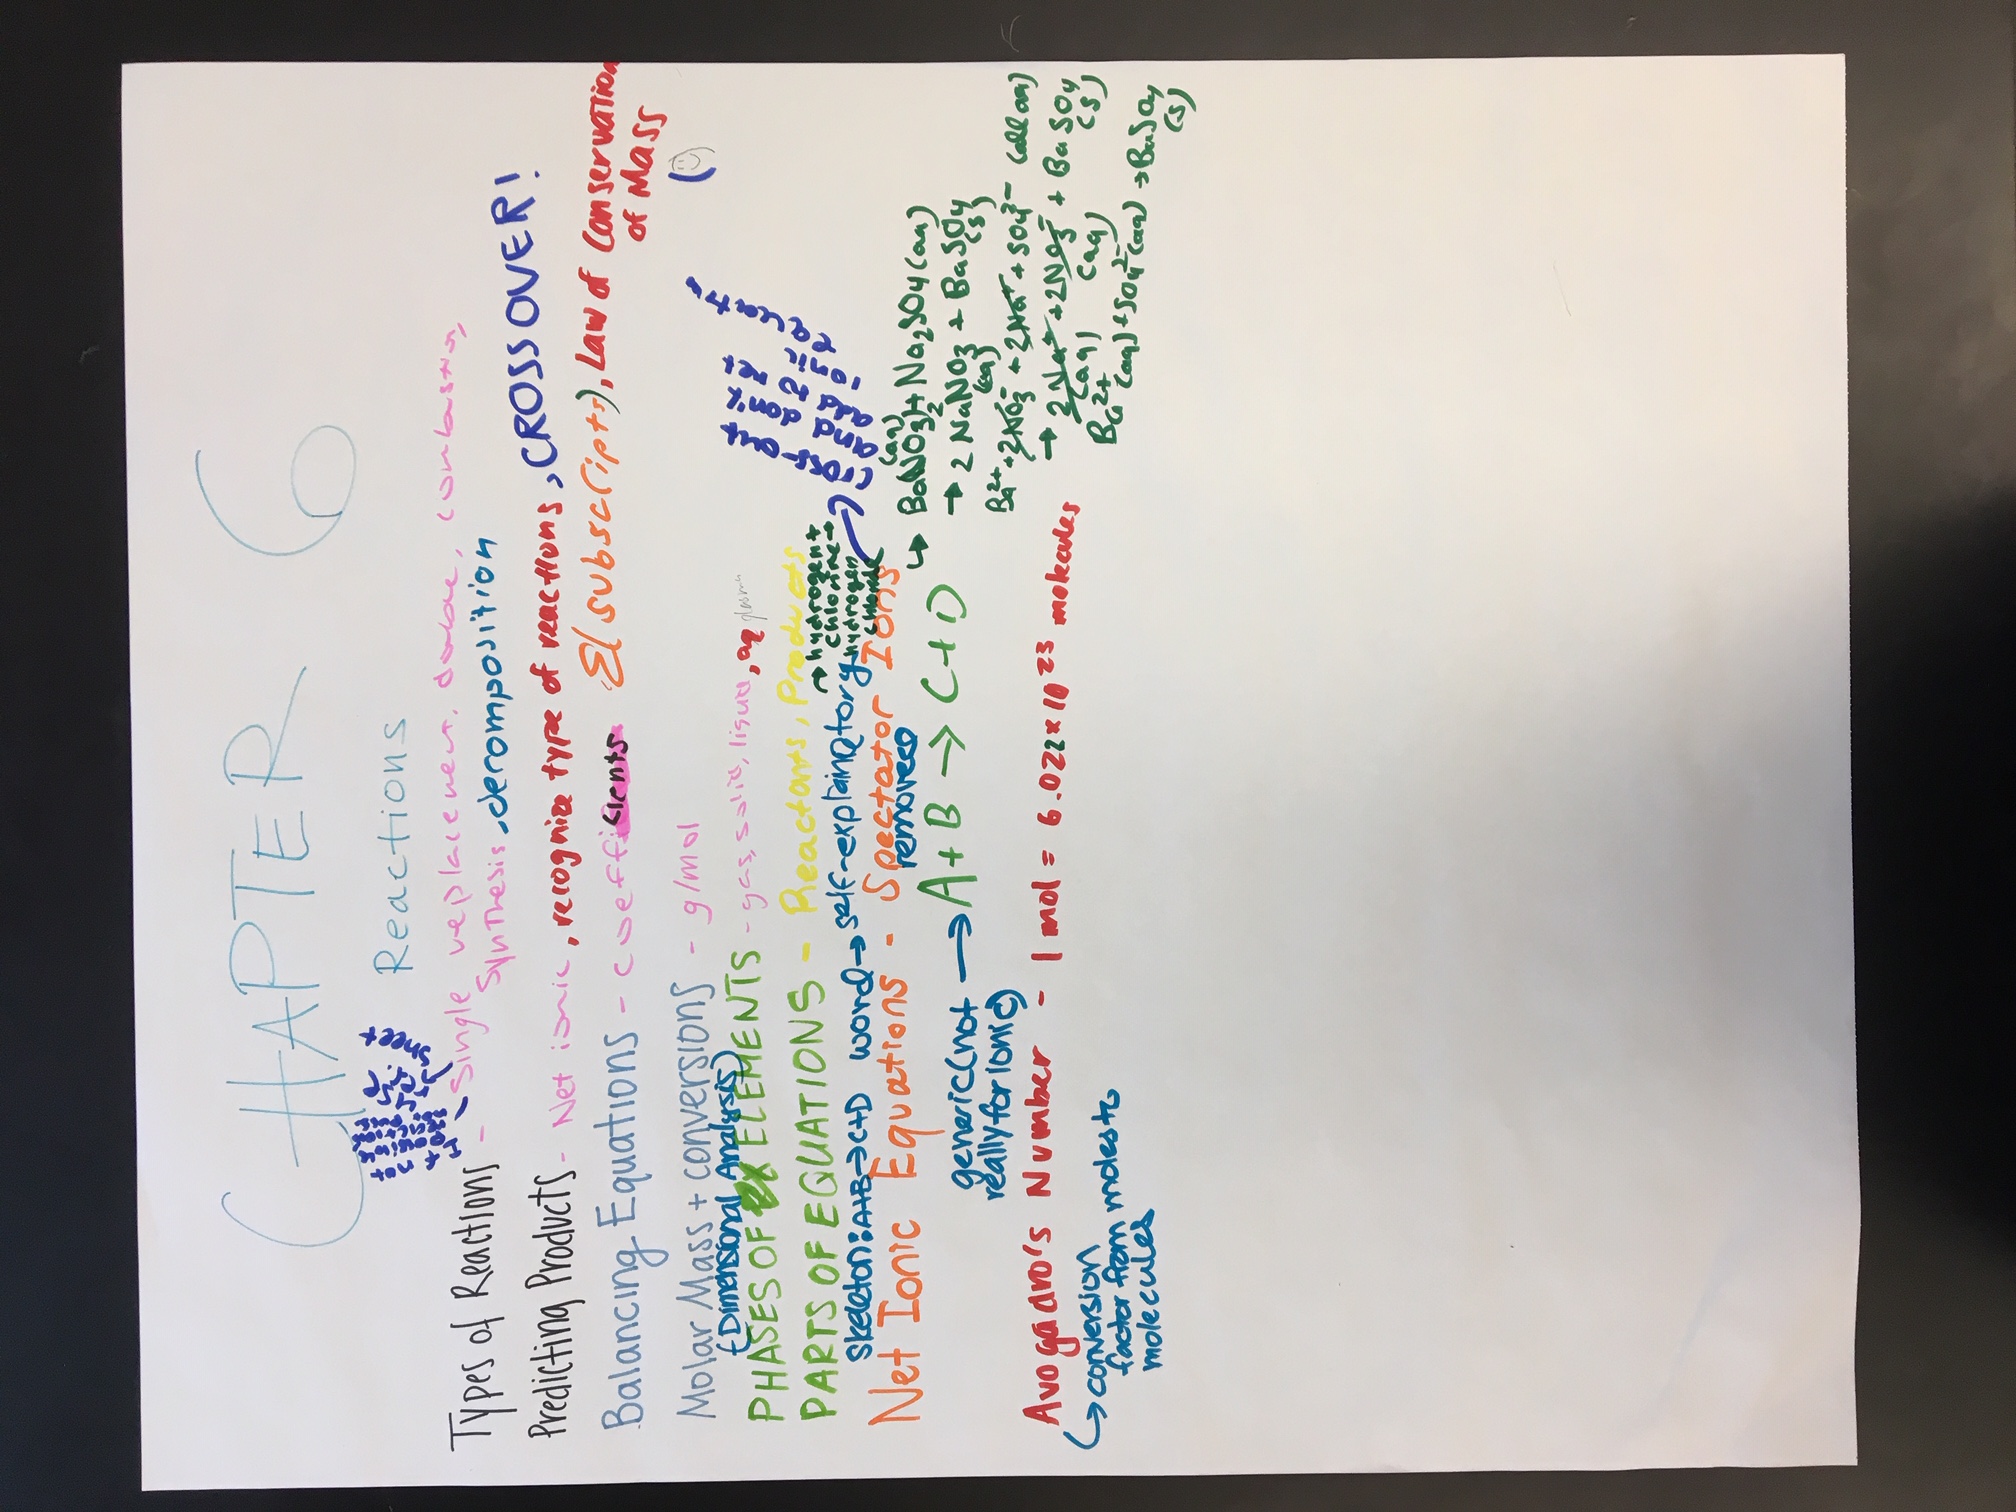 CHAPTER 6
Reactions
not
sheet
Types of Reactions - Single replacement, double, combustion,
Synthesis, decomposition
Predicting Products - Net ionic, recognize type of reactions, CROSSOVER!
Balancing Equations - coefficients E(subscripts), Law of Conservation
of Mass
Molar Mass + conversions - g/mol
(Dimensional Analysis)
PHASES OF ELEMENTS - gas, solid, liquid, aq plasma
PARTS OF EQUATIONS - Reactants, Products
skeleton: A+B→C+D word→self-explainatory
→ hydrogen +
chlorine →
hydrogen
chloride
Net Ionic Equations - Spectator Ions
removed
cross out
and don't
add to net
ionic
generic (not
really for ionic)
→ A + B → C + D
↳ Ba(NO3)2 (aq) + Na2SO4(aq)
→ 2 NaNO3 (aq) + BaSO4 (s)
Ba2+ + 2NO3- + 2Na+ + SO42- (all aq)
→ 2Na+ (aq) + 2NO3- (aq) + BaSO4 (s)
Ba2+ (aq) + SO42- (aq) → BaSO4 (s)
Avogadro's Number - 1 mol = 6.022x10 23 molecules
↳ conversion
factor from moles to
molecules